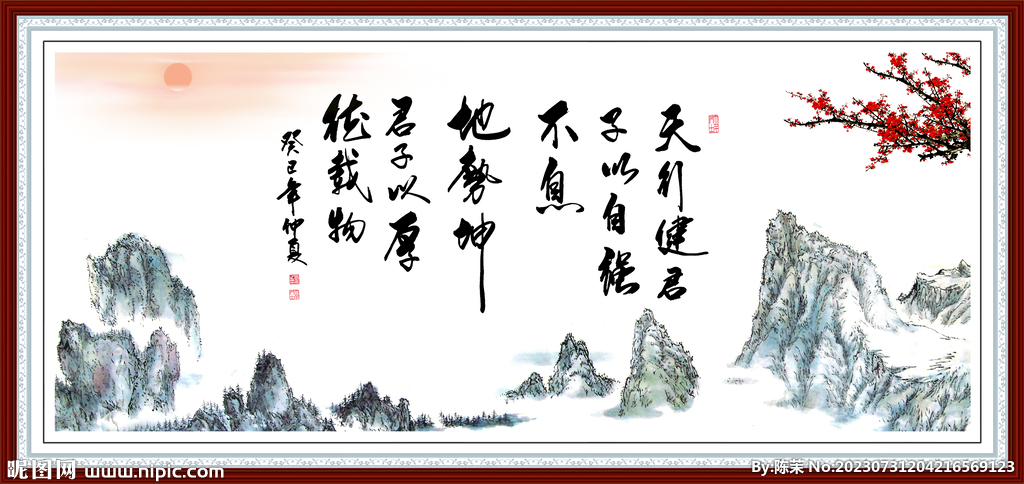 天行健君
子以自强
不息
地势坤
君子以厚
德载物
癸巳年仲夏
昵图网 www.nipic.com
By:陈荣 No:20230731204216569123